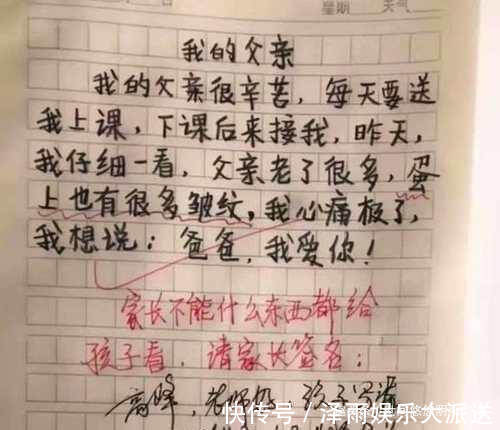 星期 天气
我的父亲
我的父亲很辛苦，每天要送
我上课，下课后来接我，昨天，
我仔细一看，父亲老了很多，蛋
上也有很多皱纹，我心痛极了，
我想说：爸爸，我爱你！
家长不能什么东西都给
孩子看，请家长签名：
高峰，老师好，孩子写错
快传号／泽雨娱乐大派送